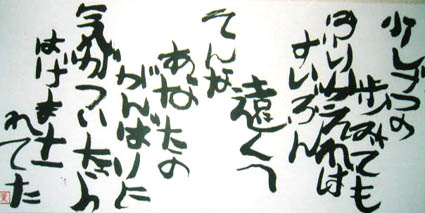 少しづつの
歩みでも
ふりかえれば
ずいぶん
遠くへ
そんな
あなたの
がんばりに
気がついたら
はげまさ
れてた